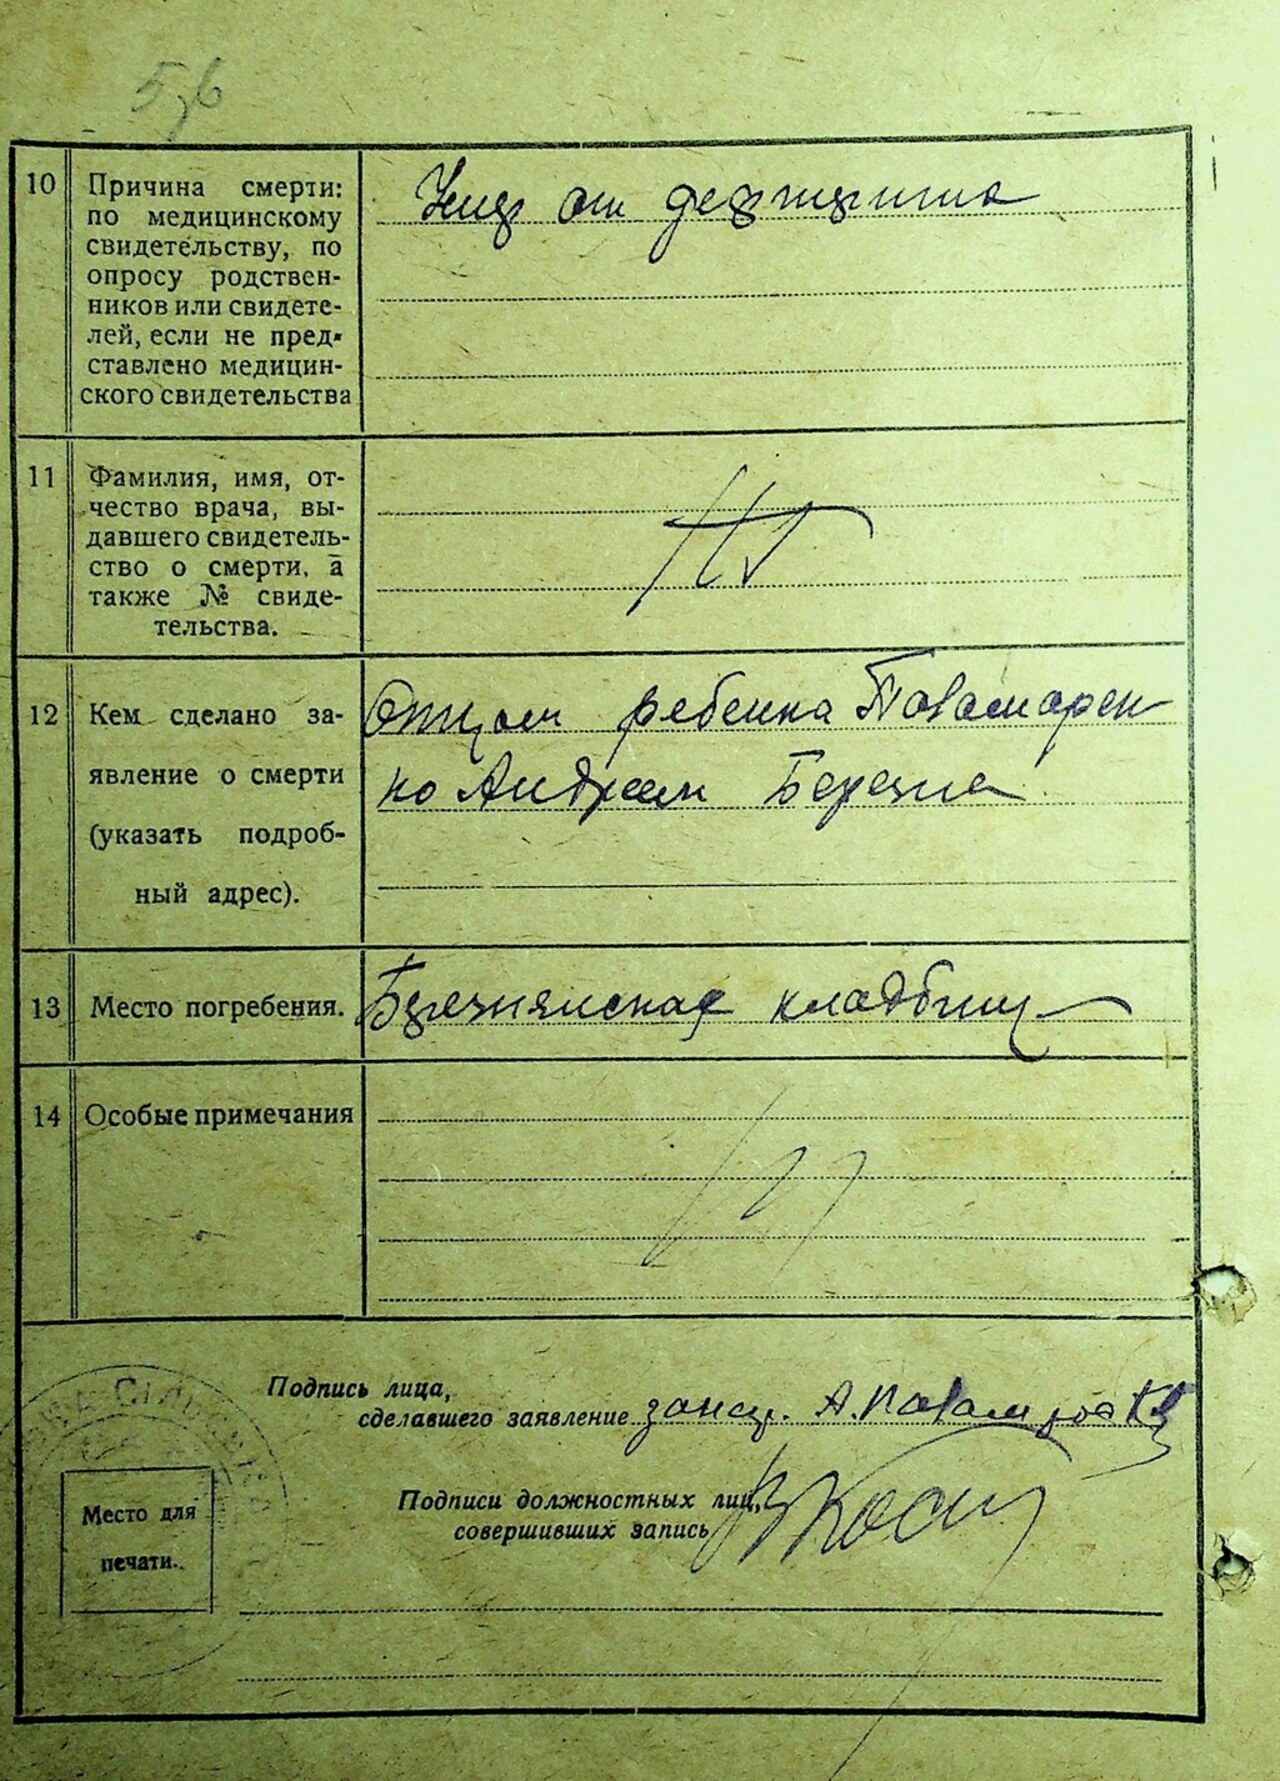 5,6
10 Причина смерти:
по медицинскому
свидетельству, по
опросу родствен-
ников или свидете-
лей, если не пред-
ставлено медицин-
ского свидетельства
от
11 Фамилия, имя, от-
чество врача, вы-
давшего свидетель-
ство о смерти, а
также № свиде-
тельства.
12 Кем сделано за-
явление о смерти
(указать подроб-
ный адрес).
Отцом ребенка Повамарен
ко Андреем
13 Место погребения.
кладбищ
14 Особые примечания
Подпись лица,
сделавшего заявление
Подписи должностных лиц,
совершивших запись
Место для
печати.